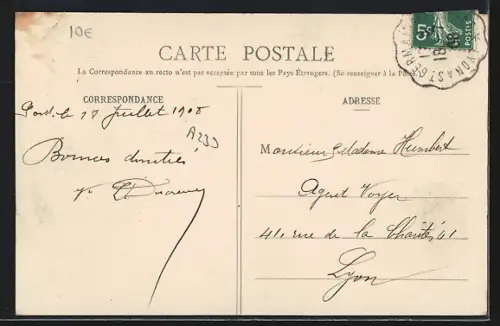 10€
CARTE POSTALE
La Correspondance au recto n'est pas acceptée par tous les Pays Étrangers. (Se renseigner à la Poste)
CORRESPONDANCE
le 17 Juillet 1908
A233
Bonnes amitiés
ADRESSE
Monsieur & Madame Humbert
Agent Voyer
41, rue de la Charité, 41
Lyon
5c
POSTES
18
08
ST GERMAIN